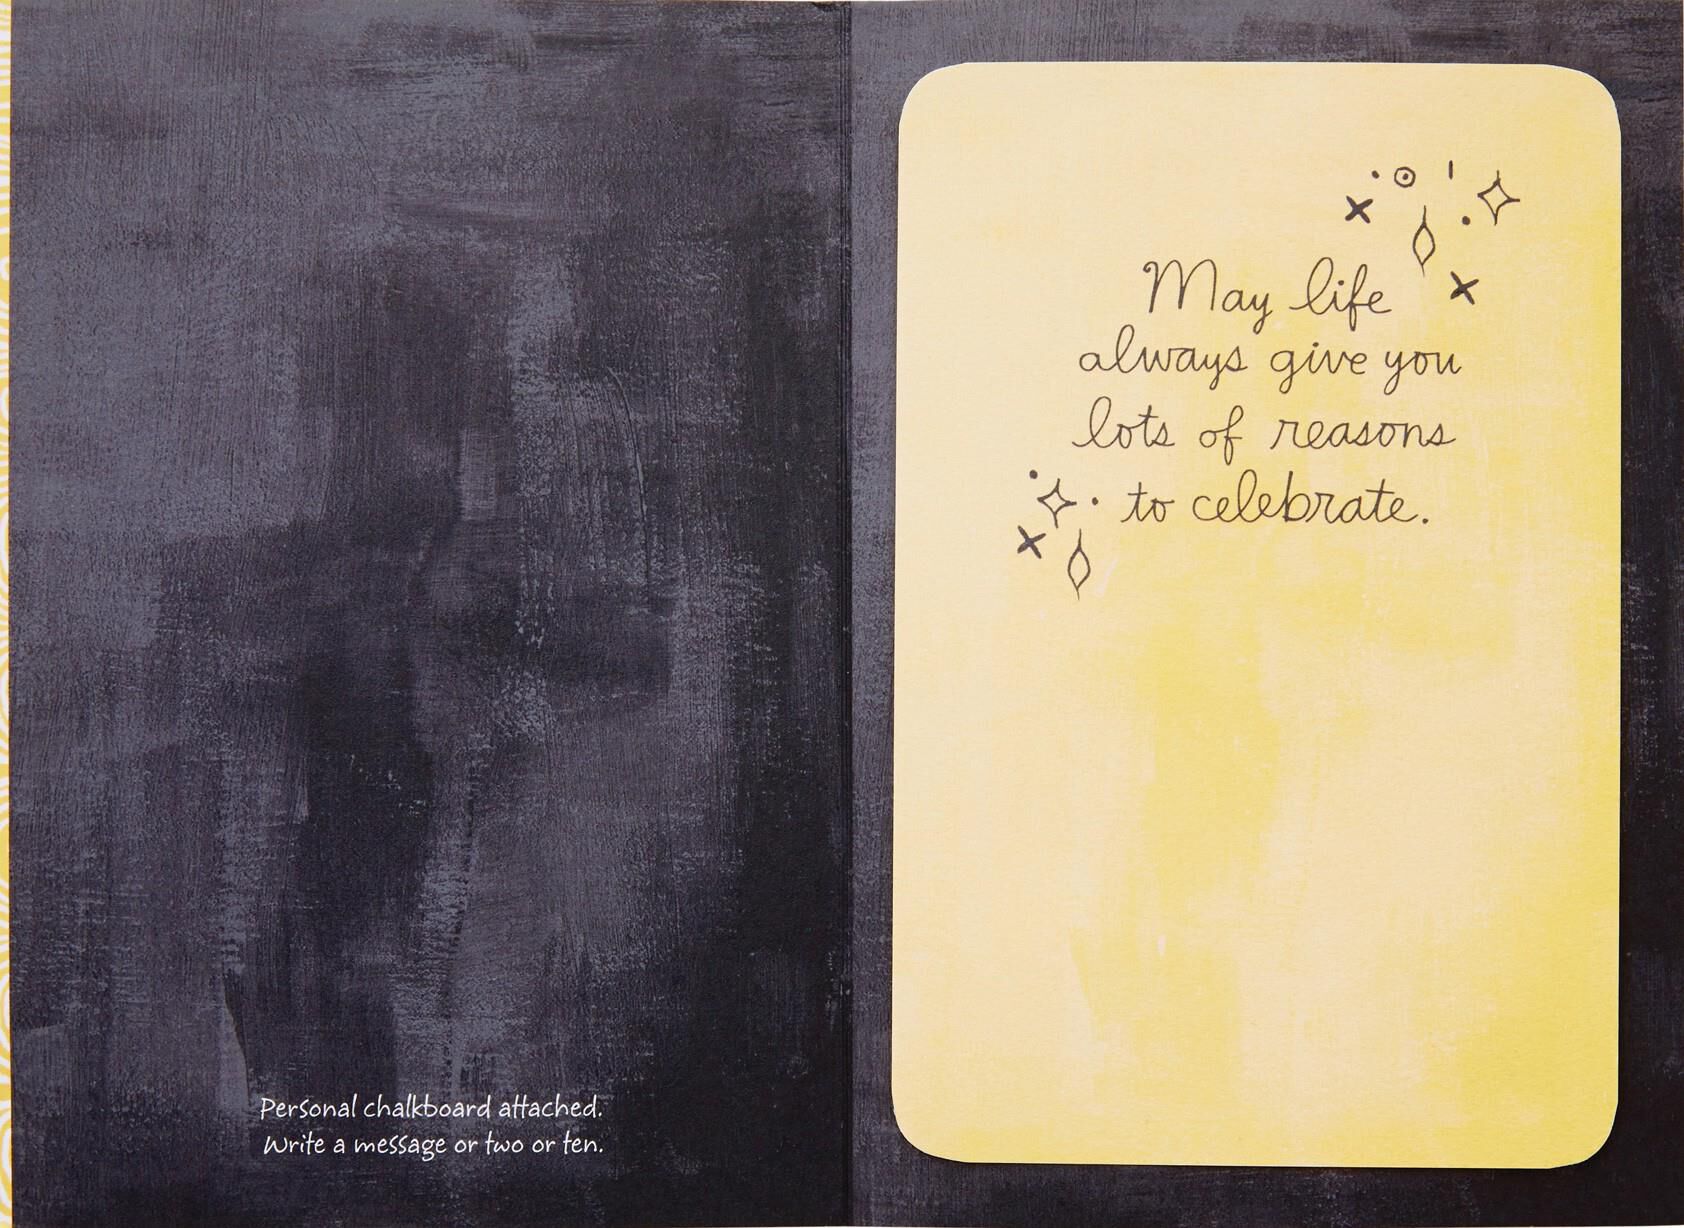 Personal chalkboard attached.
Write a message or two or ten.
May life
always give you
lots of reasons
to celebrate.